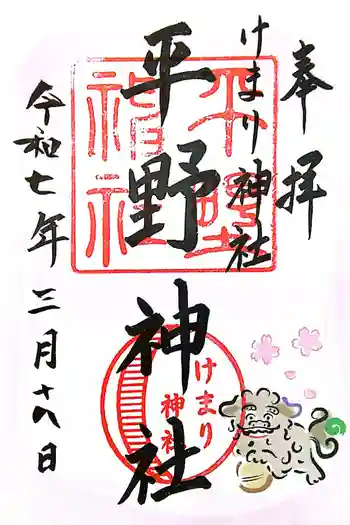 奉拝
けまり神社
平野神社
令和七年三月十八日
平野
神社
けまり
神社